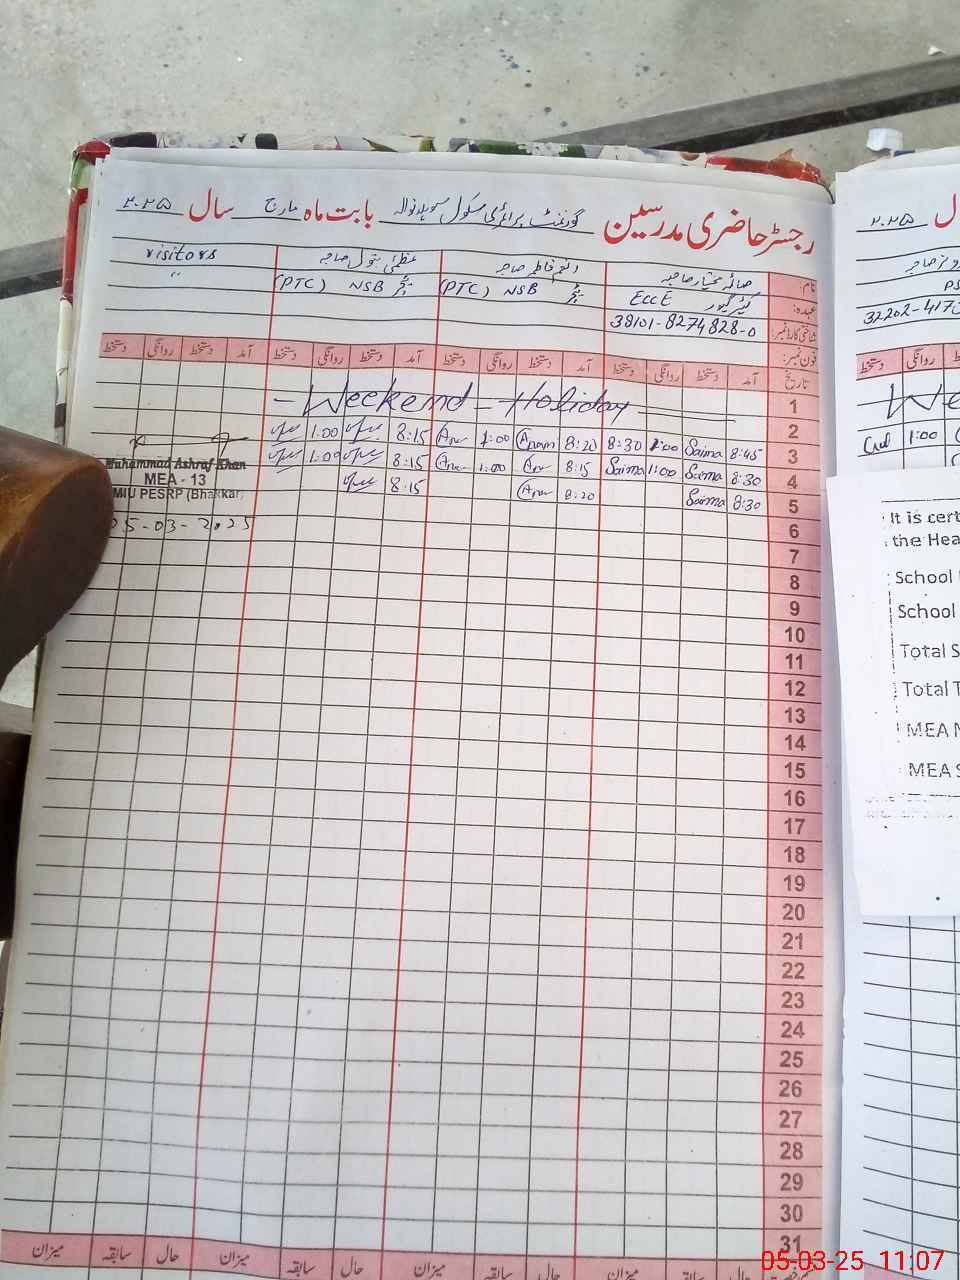 رجسٹر حاضری مدرسین گورنمنٹ پرائمری سکول بابت ماہ مارچ سال ۲۰۲۵
نام: صائمہ مختار صاحبہ
عہدہ: کیئر گیور ECCE
شناختی کارڈ نمبر: 38101-8274828-0
فون نمبر:
انعم فاطمہ صاحبہ
ٹیچر NSB (PTC)
عظمیٰ بتول صاحبہ
ٹیچر NSB (PTC)
visitors
"
تاریخ آمد دستخط روانگی دستخط آمد دستخط روانگی دستخط آمد دستخط روانگی دستخط آمد دستخط روانگی دستخط
1 - Weekend - Holiday
2
3 8:45 Saima 1:00 8:30 8:20 Anam 1:00 Anam 8:15 1:00
4 8:30 Saima 1:00 Saima 8:15 Ana 1:00 Ana 8:15 1:00
5 8:30 Saima 8:20 Ana 8:15
Muhammad Ashraf Khan
MEA - 13
MIU PESRP (Bhakkar)
05-03-2025
6
7
8
9
10
11
12
13
14
15
16
17
18
19
20
21
22
23
24
25
26
27
28
29
30
31
میزان حال سابقہ میزان حال سابقہ میزان حال سابقہ میزان
سال ۲۰۲۵
32202-417
دستخط روانگی دستخط
We
1:00
It is cert
the Hea
School
School
Total S
Total T
MEA N
MEA S
05-03-25 11:07